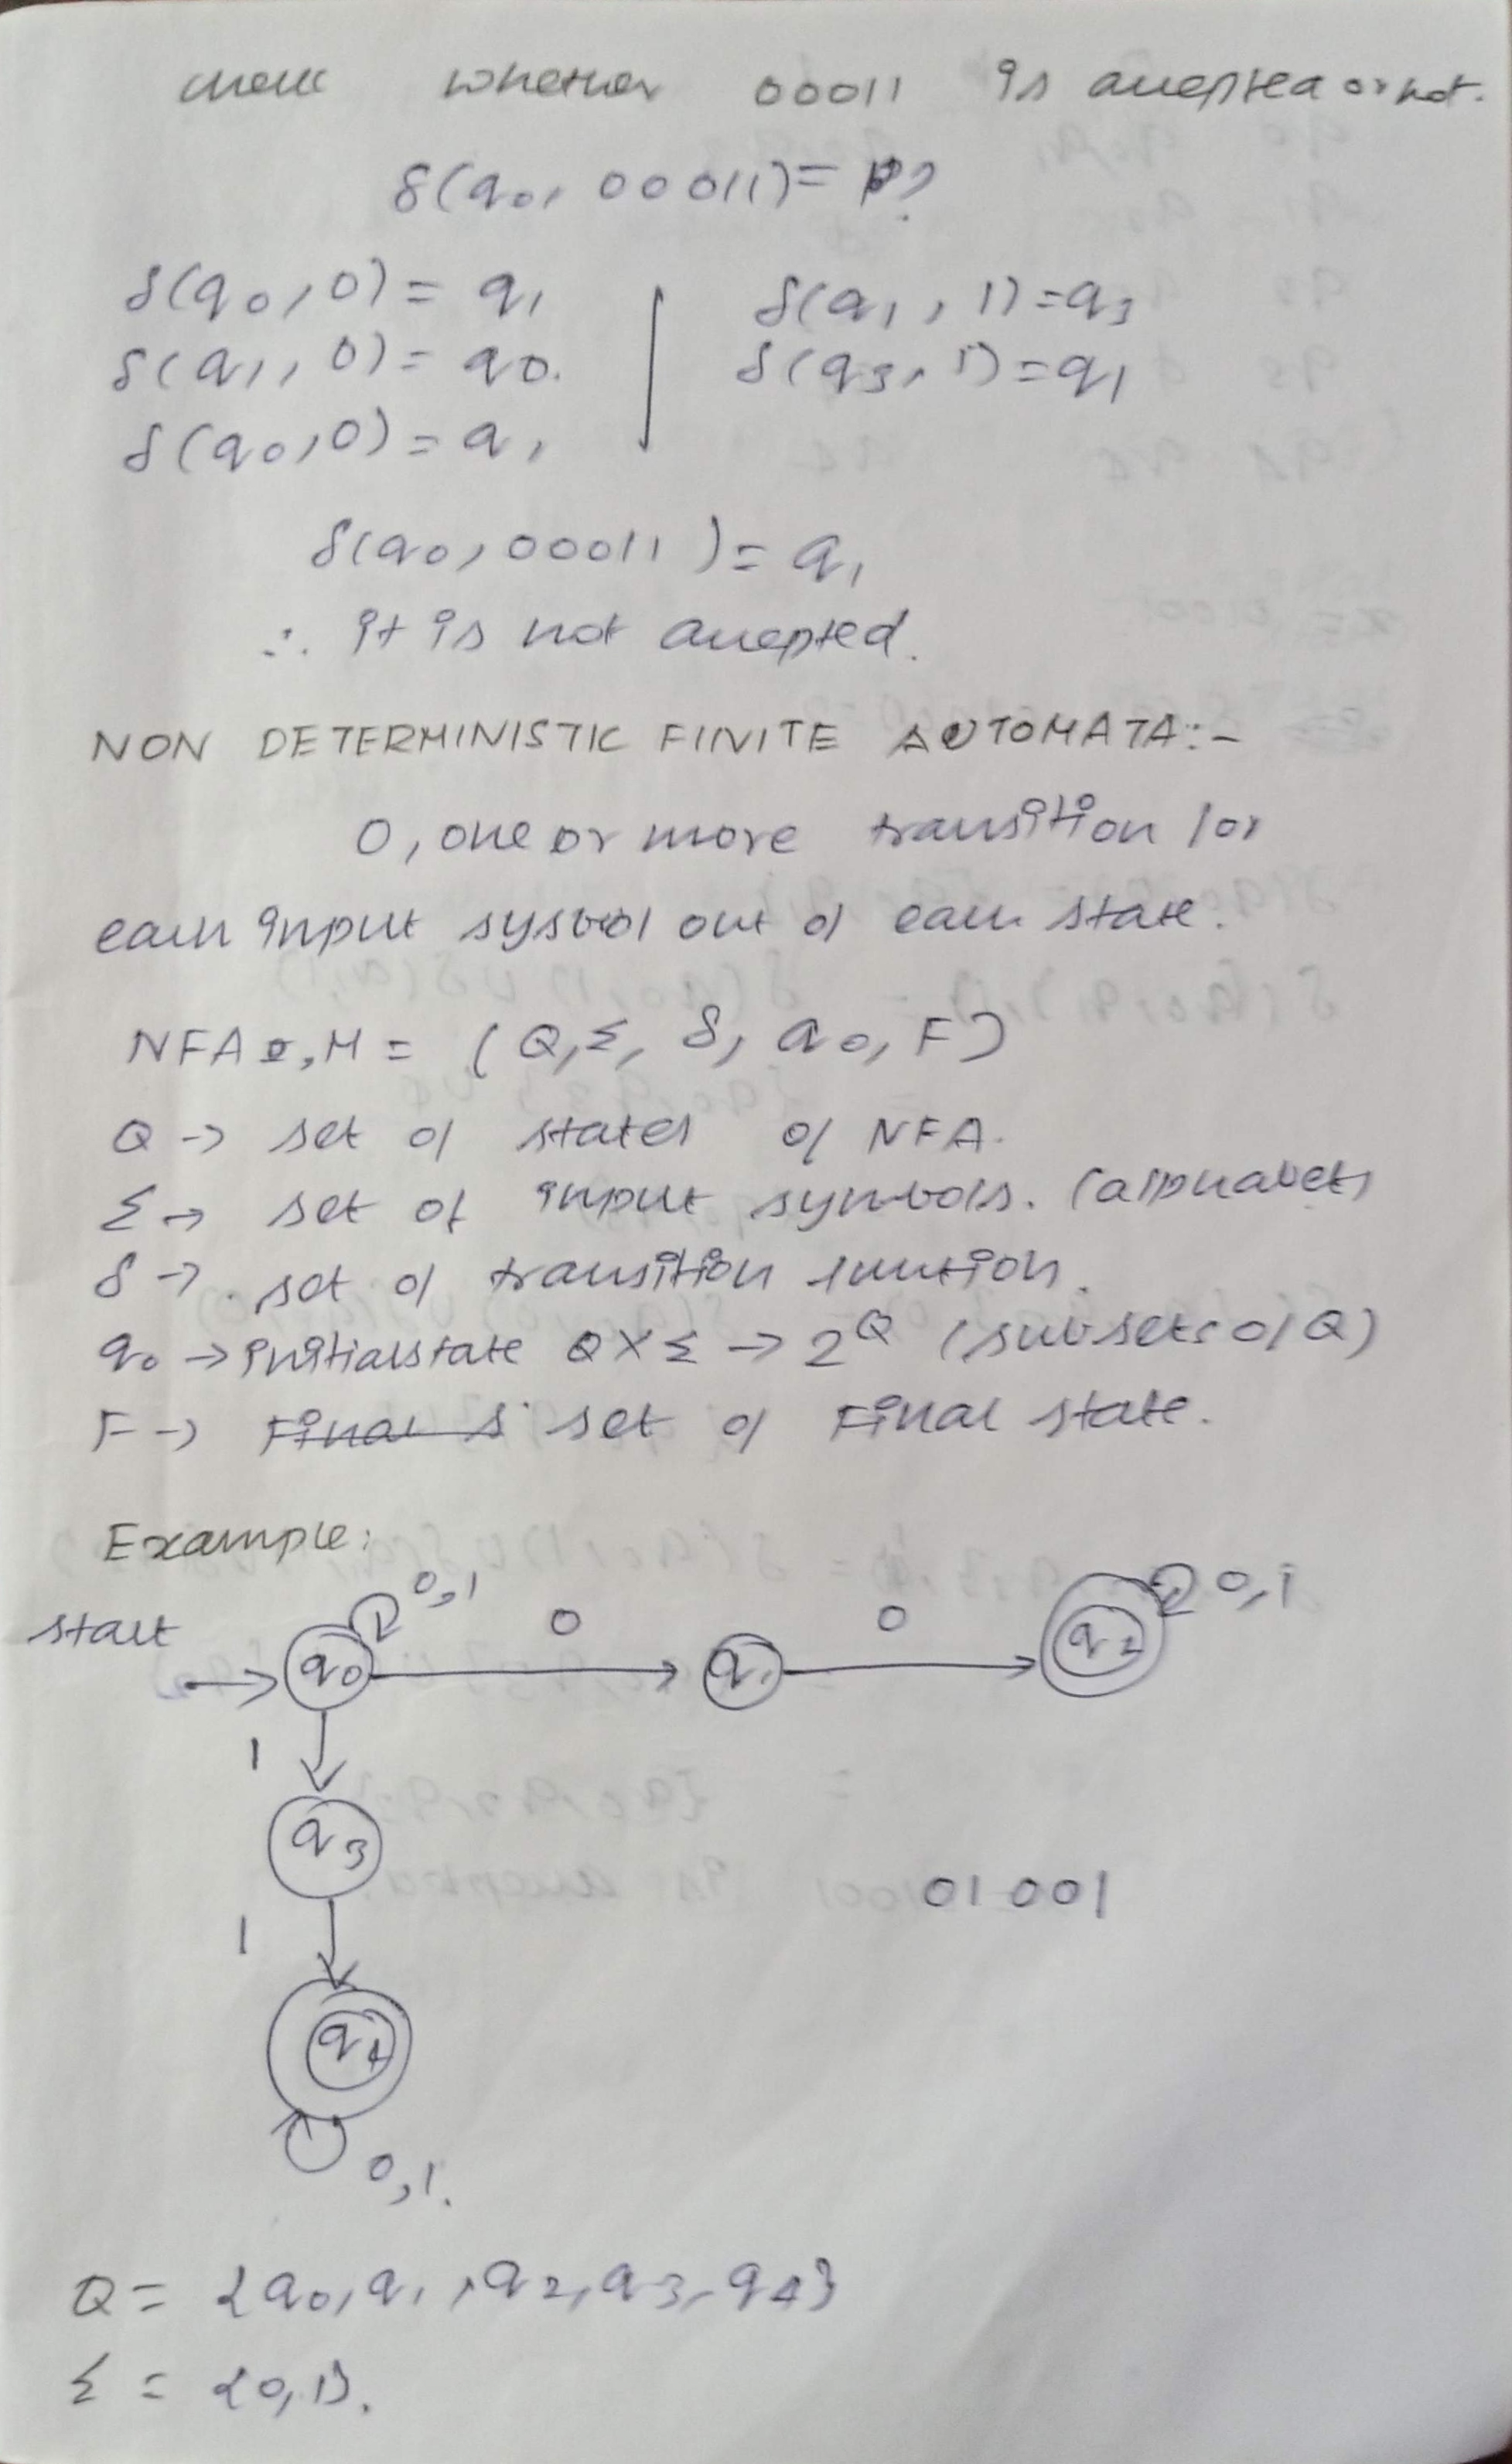 check whether 00011 is accepted or not.
δ(q0, 00011) = ?
δ(q0, 0) = q1
δ(q1, 0) = q0.
δ(q0, 0) = q1
δ(q1, 1) = q3
δ(q3, 1) = q1
δ(q0, 00011) = q1
∴ it is not accepted.
NON DETERMINISTIC FINITE AUTOMATA:-
0, one or more transition for
each input sysbol out of each state.
NFA, M = (Q, Σ, δ, q0, F)
Q → set of states of NFA.
Σ → set of input symbols. (alphabet)
δ → set of transition function.
q0 → initial state Q X Σ → 2^Q (subsets of Q)
F → Final s set of Final state.
Example:
start
0,1
0
0
0,1
q0
q1
q2
1
q3
01001
1
q4
0,1.
Q = {q0, q1, q2, q3, q4}
Σ = {0,1}.